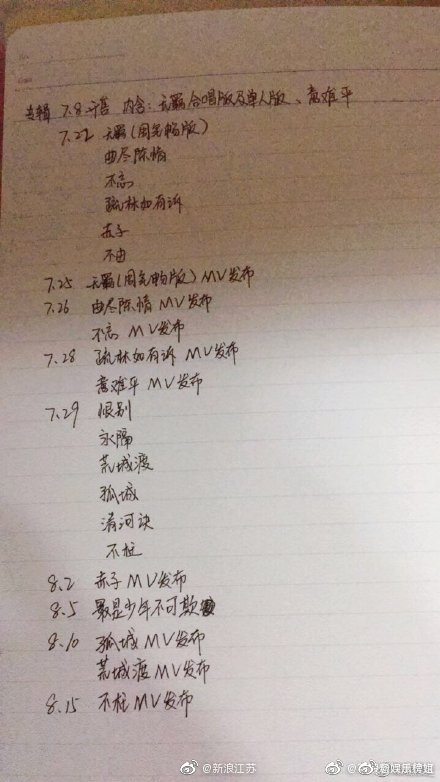 专辑 7.8 开售 内含：无羁合唱版及单人版、意难平
7.22 无羁(周笔畅版)
曲尽陈情
不忘
疏林如有诉
赤子
不由
7.25 无羁(周笔畅版) MV发布
7.26 曲尽陈情 MV发布
不忘 MV发布
7.28 疏林如有诉 MV发布
意难平 MV发布
7.29 恨别
永隔
荒城渡
孤城
清河诀
不枉
8.2 赤子 MV发布
8.5 最是少年不可欺
8.10 孤城 MV发布
荒城渡 MV发布
8.15 不枉 MV发布
@新浪江苏